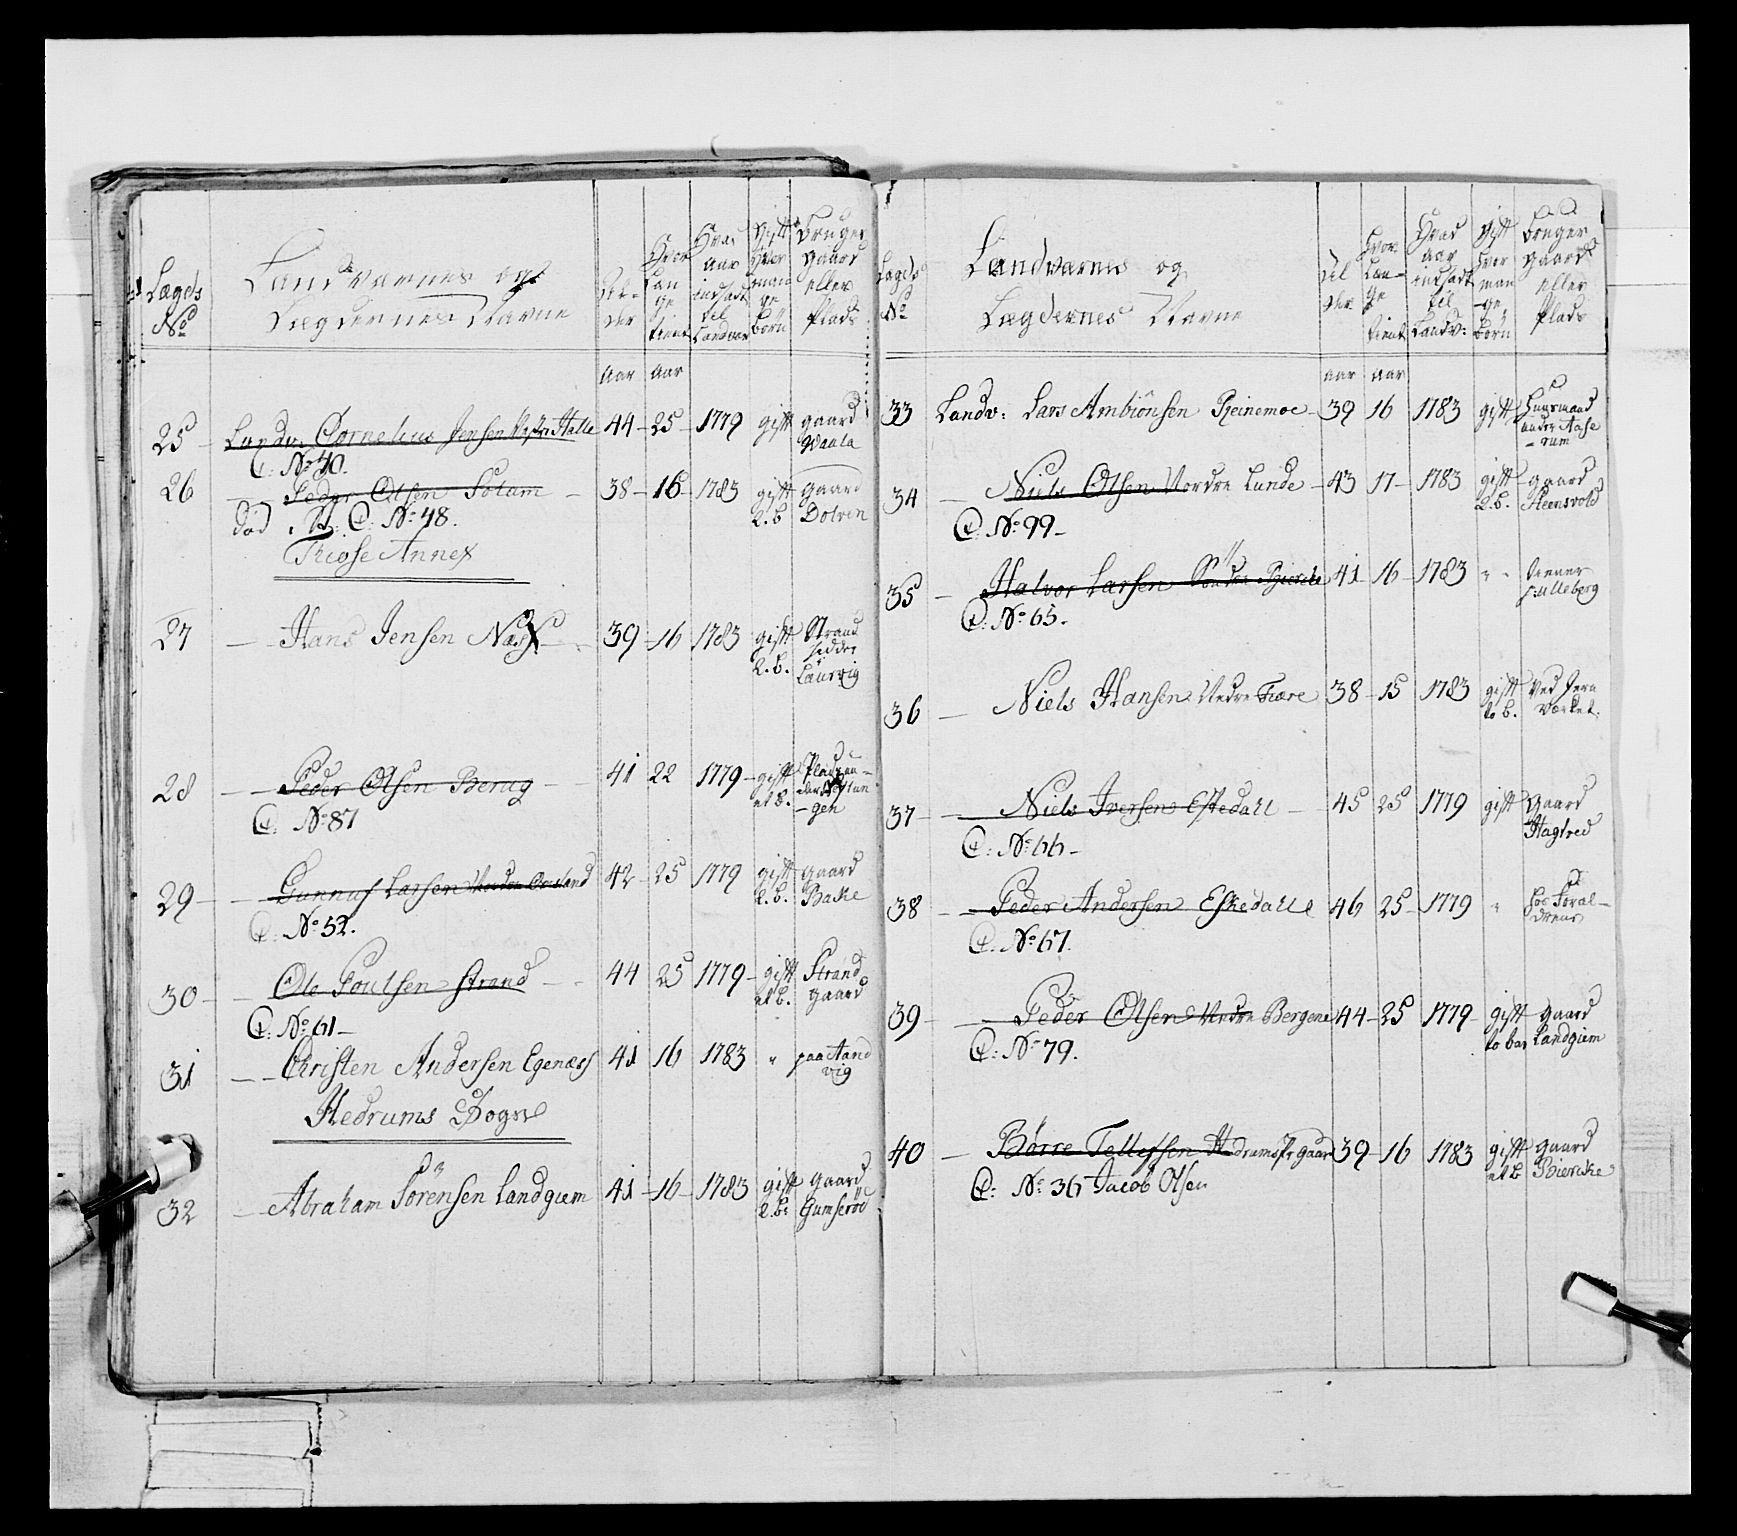 Lægds No
Landværnes og
Lægdernes Navne
Al-
der
Hvor
Lan
ge
tient
Hvad
Aar
indsadt
til
Landvær
Gift
Hvor
man-
ge
börn
Bruger
gaard
eller
Plads
Aar Aar
25 - Landv: Cornelius Jensen Halle 44 - 25 - 1779 gift gaard
Waala
C: No 40.
26 - Peder Olsen Solum - 38 - 16 - 1783 gift gaard
2. b Dolven
död C: No 48.
Thiose Annex
27 - Hans Jensen Næss - 39 - 16 1783 gift Strand
2. b. sidder
Laurvig
28 - Peder Olsen Berug - 41 22 1779 - gift Pladsen
et B.
- gen
C: No 87
29 - Gunnuf Larsen 42 - 25 1779 gift gaard
2. b. Bakke
C: No 52.
30 - Ole Poulsen Strand - 44 25 1779 - gift Strand
et b. gaard
C: No 61 -
31 - Christen Andersen Egenæss 41 16 1783 " paa Aand
vig
Hedrums Sogn
32 - Abraham Sörensen Landgiem 41 - 16 - 1783 gift gaard
2. b: Gumseröd
Lægds No
Landværnes og
Lægdernes Navne
Al
der
Hvor
Lan-
ge
tient
Hvad
Aar
indsadt
til
Landv:
Gift
Hvor
man
-ge
börn
Bruger
gaard
eller
Plads
Aar Aar
33 Landv: Lars Ambiönsen Reinemoe - 39 16 1783 gift Huusmand
under Aase
- rum
34 - Niels Olsen Nordre Lunde - 43 17 - 1783 gift gaard
2. b. Steensvold
C: No 99 -
35 - Halvor Larsen Söndre Bierche 41 - 16 - 1783 " " tienner
Fulleberg
C: No 65.
36 - Niels Hansen Nedre Fiære 38 - 15 1783 gift Ved Jern
to b. værket.
37 - Niels Iversen Eskedall - 45 25 1779 gift gaard
Hagtved
C: No 66 -
38 - Peder Andersen Eskedall 46 25 - 1779 " hos Foræl-
drene
C: No 67.
39 - Peder Olsen Nedre Bergene 44 - 25 1779 - gift gaard
to bar Landgiem
C: No 79.
40 - Börre Tellefsen Hedrums Pr gaard 39 - 16 1783 gift gaard
et b Biercke
C: No 36 Jacob Olsen